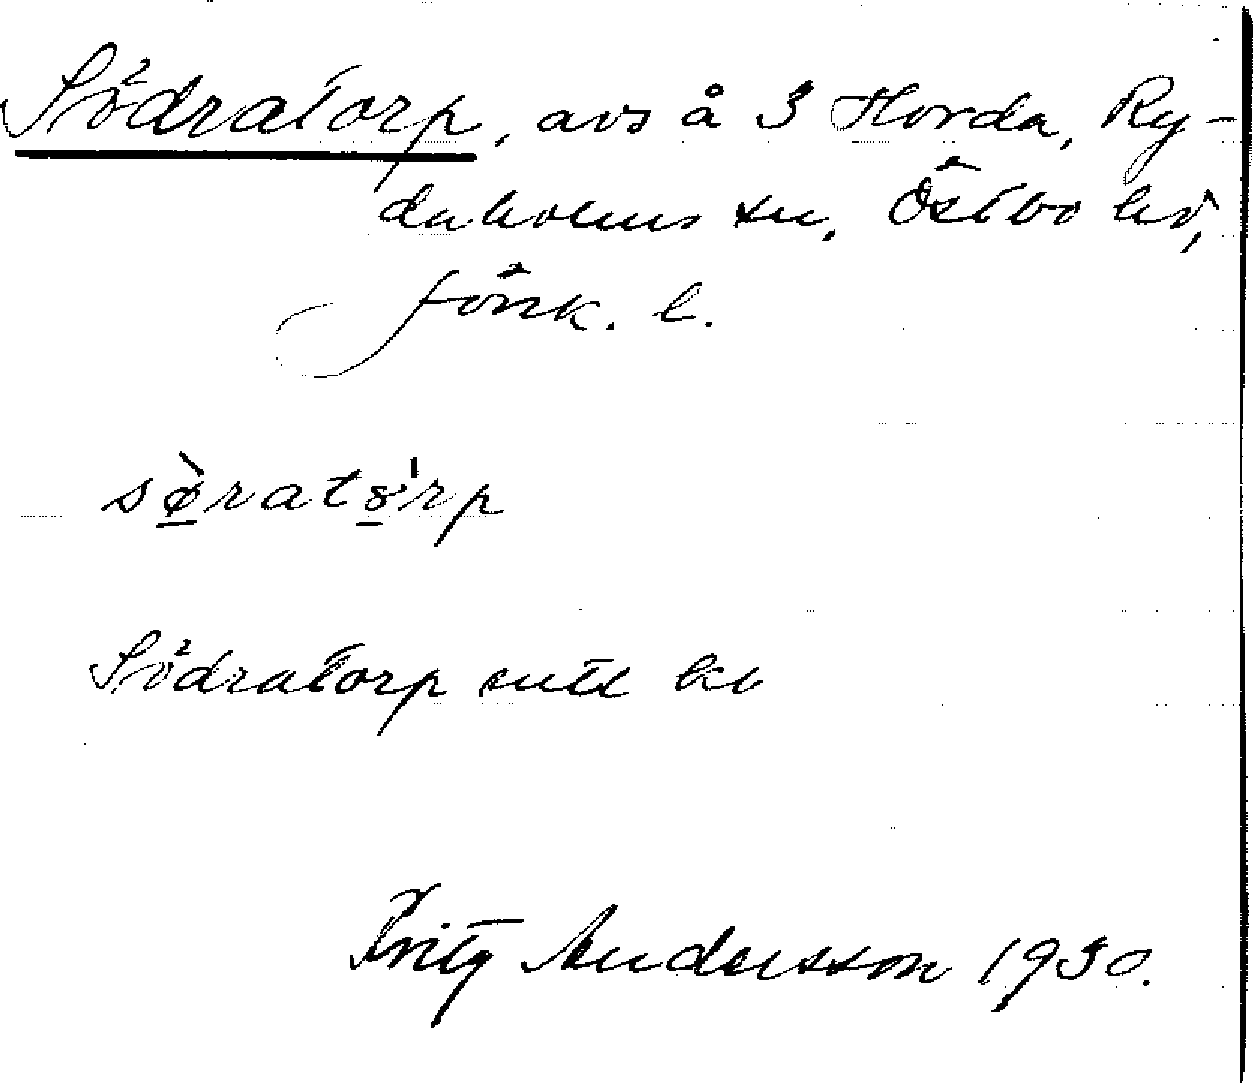 Södratorp, avs å 3 Horda, Ry-
daholms sn, Östbo hd,
Jönk. l.
sø̠̀rato̠̍rp
Södratorp entl kb
Fritz Andersson 1930.